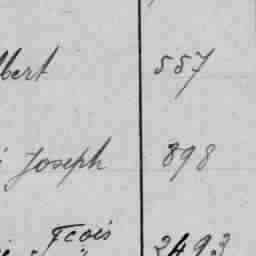 lbert 557
Joseph 898
Fcois
2493